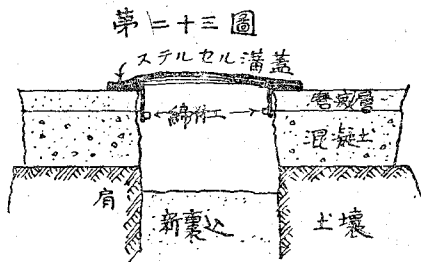 第二十三圖
ステルセル溝蓋
磨滅層
綿竹工
混凝土
肩
新裏込
土壤